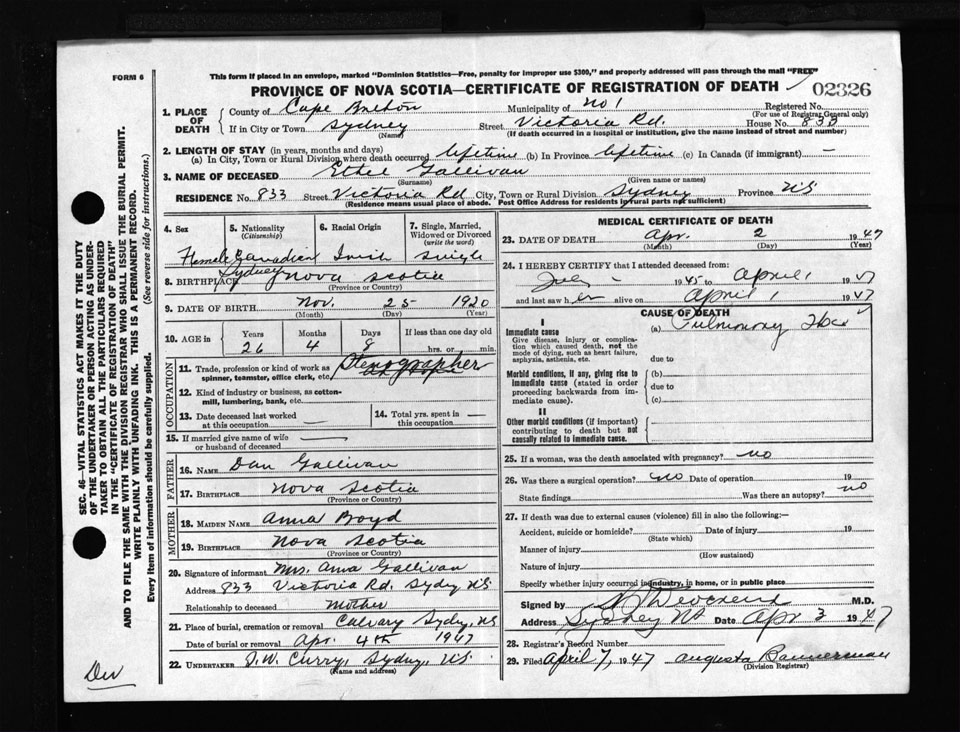 FORM 6
This form if placed in an envelope, marked "Dominion Statistics—Free, penalty for improper use $300," and properly addressed will pass through the mail "FREE"
PROVINCE OF NOVA SCOTIA—CERTIFICATE OF REGISTRATION OF DEATH
02326
1. PLACE OF DEATH
County of Cape Breton Municipality of No 1 Registered No.
(For use of Registrar General only)
If in City or Town Sydney Street Victoria Rd. House No. 833
(Name) (If death occurred in a hospital or institution, give the name instead of street and number)
2. LENGTH OF STAY (in years, months and days)
(a) In City, Town or Rural Division where death occurred lifetime (b) In Province lifetime (c) In Canada (if immigrant) —
3. NAME OF DECEASED Ethel Gallivan
(Surname) (Given name or names)
RESIDENCE No. 833 Street Victoria Rd City, Town or Rural Division Sydney Province NS
(Residence means usual place of abode. Post Office Address for residents in rural parts not sufficient)
4. Sex 5. Nationality (Citizenship) 6. Racial Origin 7. Single, Married, Widowed or Divorced (write the word)
Female Canadian Irish Single
8. BIRTHPLACE Sydney Nova Scotia
(Province or Country)
9. DATE OF BIRTH Nov. 25 1920
(Month) (Day) (Year)
10. AGE in Years Months Days If less than one day old
26 4 8 hrs. or min.
OCCUPATION
11. Trade, profession or kind of work as spinner, teamster, office clerk, etc. Stenographer
12. Kind of industry or business, as cotton-mill, lumbering, bank, etc.
13. Date deceased last worked at this occupation — 14. Total yrs. spent in this occupation —
15. If married give name of wife or husband of deceased —
FATHER
16. NAME Dan Gallivan
17. BIRTHPLACE Nova Scotia
(Province or Country)
MOTHER
18. MAIDEN NAME Anna Boyd
19. BIRTHPLACE Nova Scotia
(Province or Country)
20. Signature of informant Mrs. Anna Gallivan
Address 833 Victoria Rd. Sydney NS
Relationship to deceased Mother
21. Place of burial, cremation or removal Calvary Sydney, NS
Date of burial or removal Apr. 4th 1947
22. UNDERTAKER D.W. Curry, Sydney, NS
(Name and address)
MEDICAL CERTIFICATE OF DEATH
23. DATE OF DEATH Apr. 2 1947
(Month) (Day) (Year)
24. I HEREBY CERTIFY that I attended deceased from:
July - 1945 to April 1 1947
and last saw her alive on April 1 1947
CAUSE OF DEATH
I
Immediate cause (a) Pulmonary Tbc
Give disease, injury or complication which caused death, not the mode of dying, such as heart failure, asphyxia, asthenia, etc.
due to
Morbid conditions, if any, giving rise to immediate cause (stated in order proceeding backwards from immediate cause).
(b)
due to
(c)
II
Other morbid conditions (if important) contributing to death but not causally related to immediate cause.
25. If a woman, was the death associated with pregnancy? no
26. Was there a surgical operation? no Date of operation 19
State findings Was there an autopsy? no
27. If death was due to external causes (violence) fill in also the following:—
Accident, suicide or homicide? Date of injury 19
(State which)
Manner of injury
(How sustained)
Nature of injury
Specify whether injury occurred in industry, in home, or in public place
Signed by M.D.
Address Sydney NS Date Apr 3 1947
28. Registrar's Record Number
29. Filed April 7, 1947 Augusta Bannerman
(Division Registrar)
SEC. 46—VITAL STATISTICS ACT MAKES IT THE DUTY
OF THE UNDERTAKER OR PERSON ACTING AS UNDER-
TAKER TO OBTAIN ALL THE PARTICULARS REQUIRED
IN THE "CERTIFICATE OF REGISTRATION OF DEATH"
AND TO FILE THE SAME WITH THE DIVISION REGISTRAR WHO SHALL ISSUE THE BURIAL PERMIT.
WRITE PLAINLY WITH UNFADING INK. THIS IS A PERMANENT RECORD.
Every item of information should be carefully supplied. (See reverse side for instructions.)